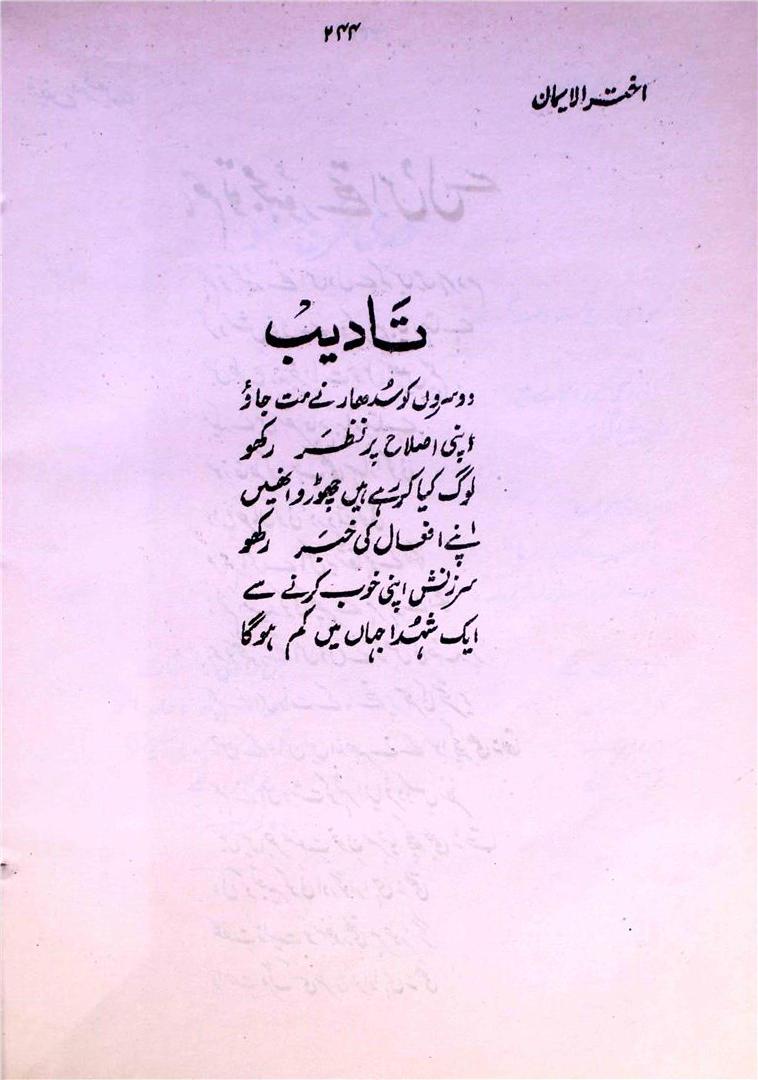 ۲۴۴
اختر الایمان
تادیب
دوسروں کو سدھارنے مت جاؤ
اپنی اصلاح پر نظر رکھو
لوگ کیا کر رہے ہیں چھوڑو انھیں
اپنے افعال کی خبر رکھو
سرزنش اپنی خوب کرنے سے
ایک شہدا جہاں میں کم ہوگا